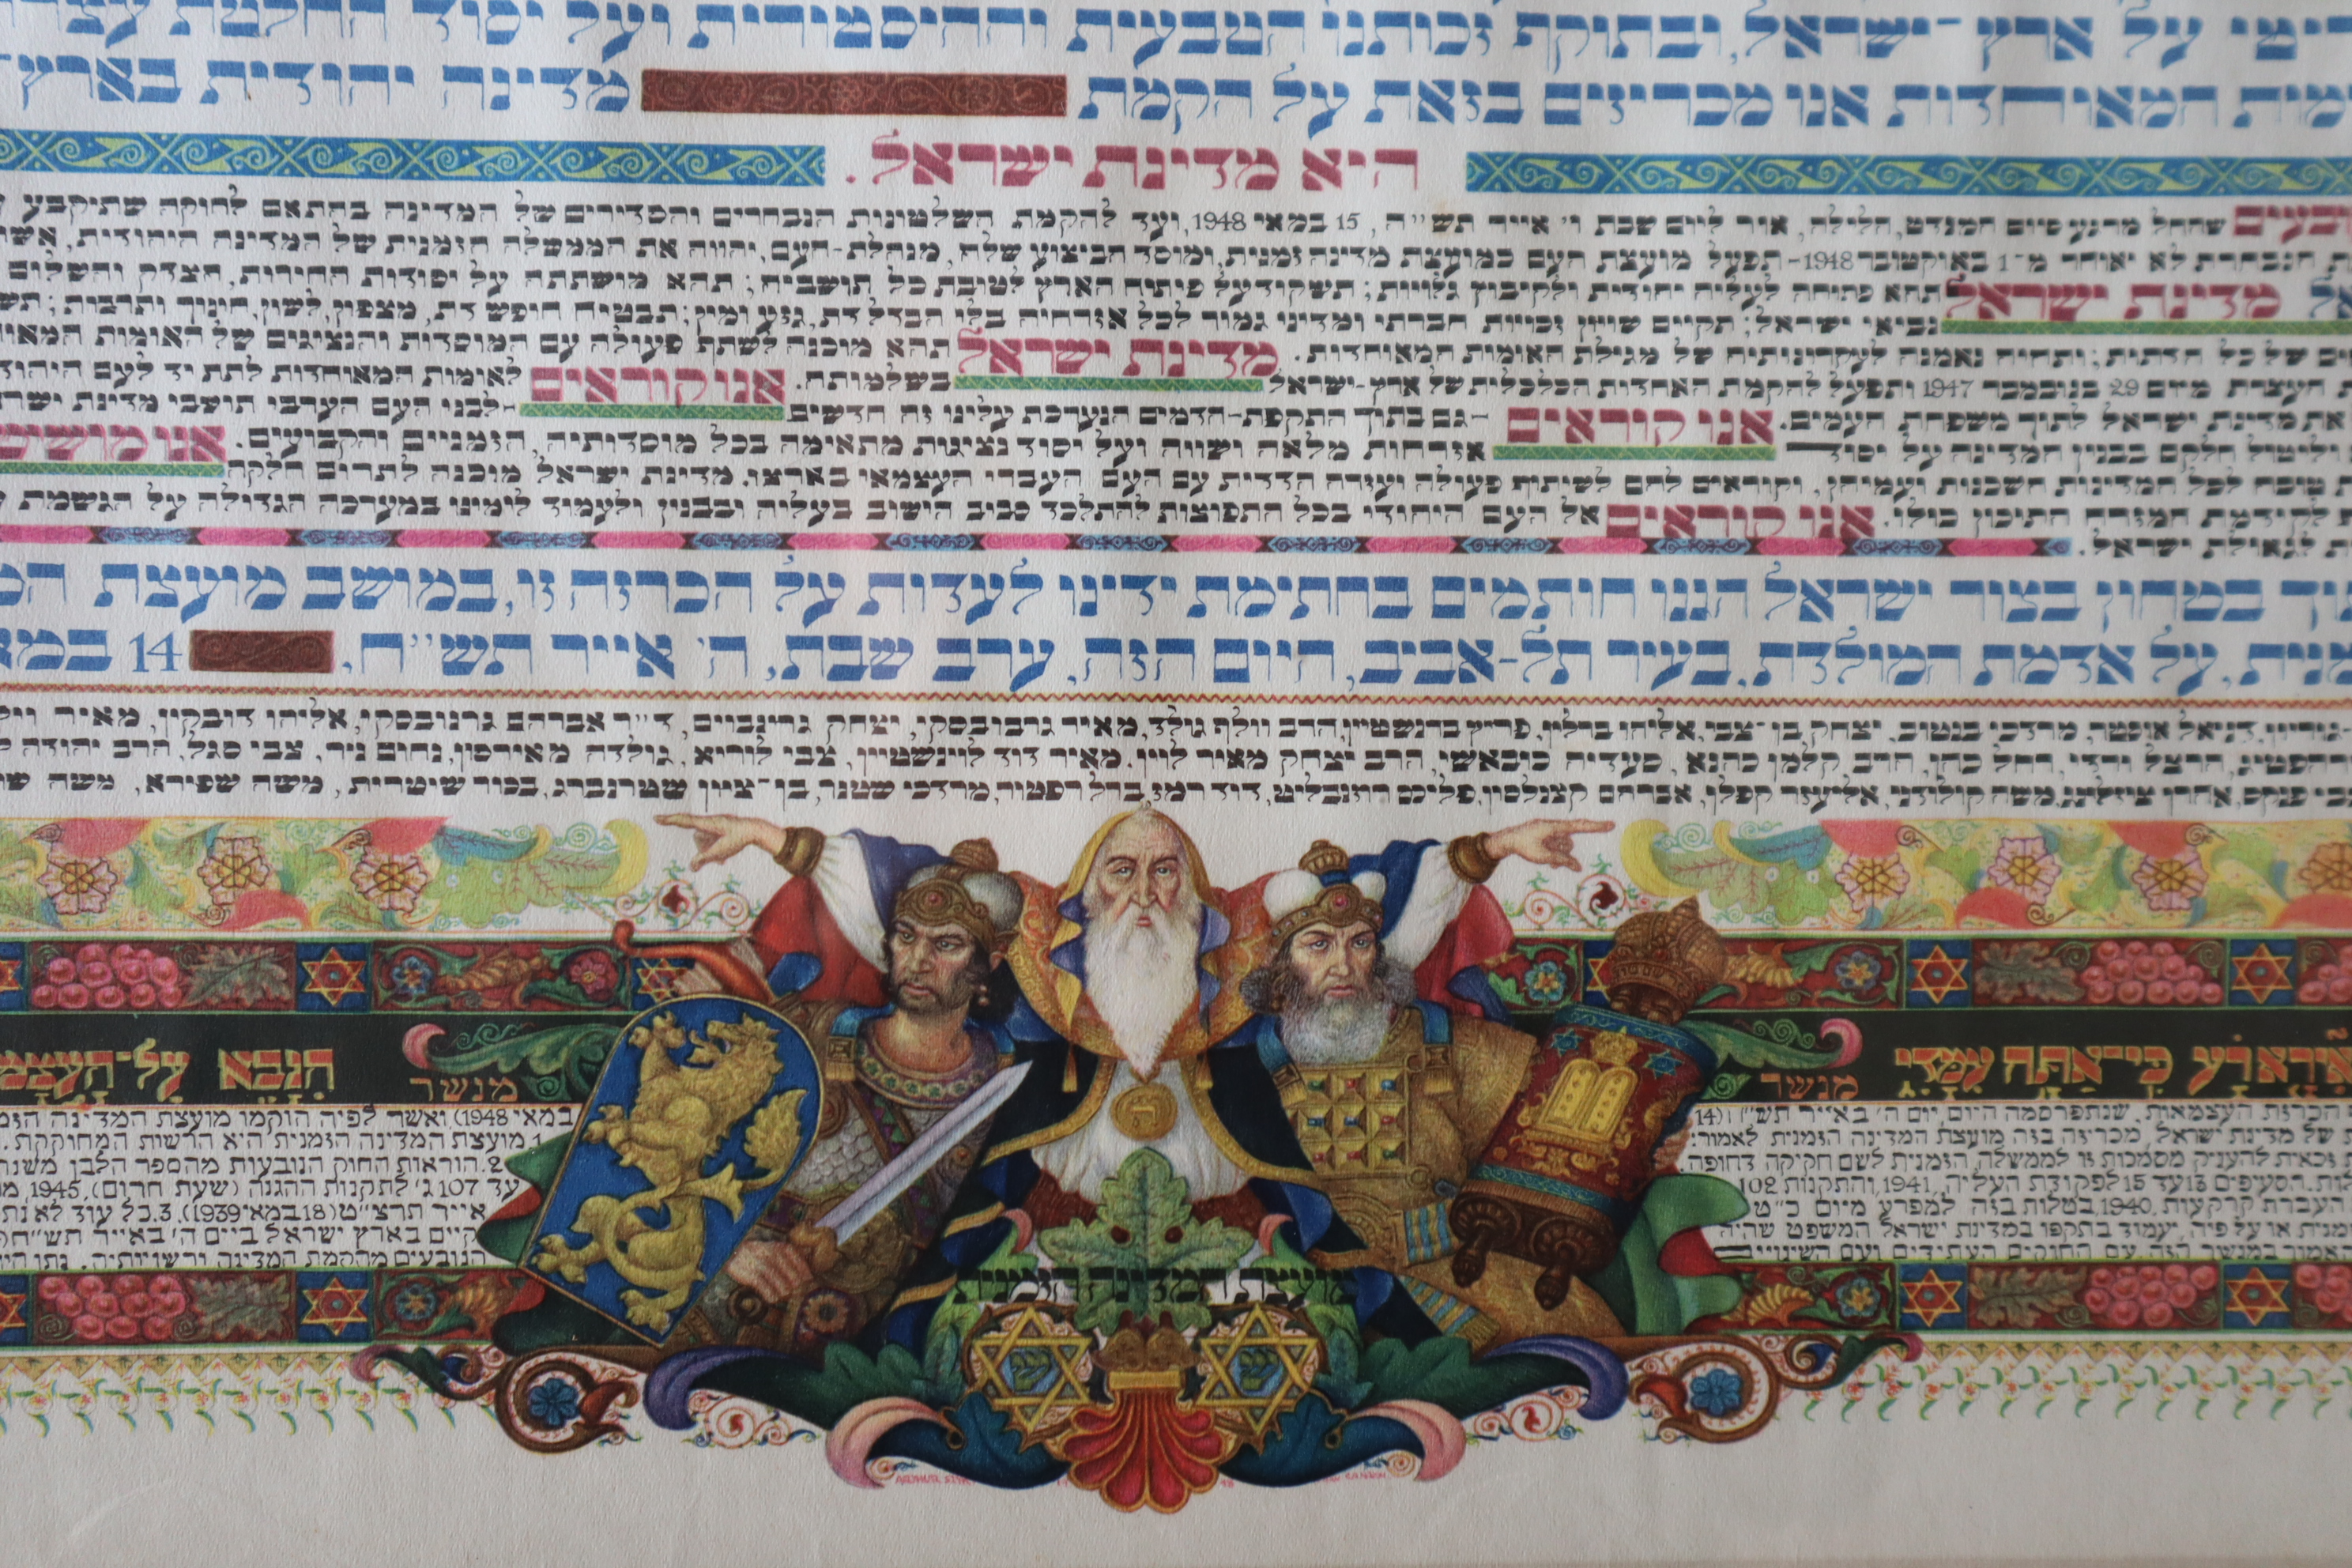 על ארץ-ישראל, ובתוקף זכותנו הטבעית וההיסטורית ועל יסוד החלטת
המאוחדות אנו מכריזים בזאת על הקמת מדינה יהודית בארץ-
היא מדינת ישראל.
שהחל מרגע סיום המנדט, הלילה, אור ליום שבת ו' אייר תש"ח, 15 במאי 1948, ועד להקמת השלטונות הנבחרים והסדירים של המדינה בהתאם לחוקה שתיקבע
הנבחרת לא יאוחר מ-1 באוקטובר 1948 - תפעל מועצת העם כמועצת מדינה זמנית, ומוסד הביצוע שלה, מנהלת-העם, יהווה את הממשלה הזמנית של המדינה היהודית,
מדינת ישראל תהא פתוחה לעליה יהודית ולקיבוץ גלויות; תשקוד על פיתוח הארץ לטובת כל תושביה; תהא מושתתה על יסודות החירות, הצדק והשלום
נביאי ישראל; תקיים שויון זכויות חברתי ומדיני גמור לכל אזרחיה בלי הבדל דת, גזע ומין; תבטיח חופש דת, מצפון, לשון, חינוך ותרבות;
של כל הדתות; ותהיה נאמנה לעקרונותיה של מגילת האומות המאוחדות. מדינת ישראל תהא מוכנה לשתף פעולה עם המוסדות והנציגים של האומות
העצרת מיום 29 בנובמבר 1947 ותפעל להקמת האחדות הכלכלית של ארץ-ישראל בשלמותה. אנו קוראים לאומות המאוחדות לתת יד לעם
את מדינת ישראל לתוך משפחת העמים. אנו קוראים - גם בתוך התקפת-הדמים הנערכת עלינו זה חדשים - לבני העם הערבי תושבי מדינת
וליטול חלקם בבנין המדינה על יסוד אזרחות מלאה ושווה ועל יסוד נציגות מתאימה בכל מוסדותיה, הזמניים והקבועים. אנו מושיטים
לכל המדינות השכנות ועמיהן, וקוראים להם לשיתוף פעולה ועזרה הדדית עם העם העברי העצמאי בארצו. מדינת ישראל מוכנה לתרום חלקה
לקידמת המזרח התיכון כולו. אנו קוראים אל העם היהודי בכל התפוצות להתלכד סביב הישוב בעליה ובבנין ולעמוד לימינו במערכה הגדולה על הגשמת
לגאולת ישראל.
בטחון בצור ישראל הננו חותמים בחתימת ידינו לעדות על הכרזה זו, במושב מועצת
על אדמת המולדת, בעיר תל-אביב, היום הזה, ערב שבת, ה' אייר תש"ח, 14
דניאל אוסטר, מרדכי בנטוב, יצחק בן-צבי, אליהו ברלין, פריץ ברנשטיין, הרב וולף גולד, מאיר גרבובסקי, יצחק גרינבוים, ד"ר אברהם גרנובסקי, אליהו דובקין, מאיר
הרצל ורדי, רחל כהן, הרב קלמן כהנא, סעדיה כובאשי, הרב יצחק מאיר לוין, מאיר דוד לוינשטיין, צבי לוריא, גולדה מאירסון, נחום ניר, צבי סגל, הרב יהודה
פנקס, אהרן ציזלינג, משה קולודני, אליעזר קפלן, אברהם קצנלסון, פליכס רוזנבליט, דוד רמז, ברל רפטור, מרדכי שטנר, בן-ציון שטרנברג, בכור שיטרית, משה שפירא, משה
כִּי־אַתָּה עִמָּדִי
מנשר
הכרזת העצמאות, שנתפרסמה היום, יום ה' באייר תש"ח (14
של מדינת ישראל, מכריזה בזה מועצת המדינה הזמנית לאמור:
זכאית להעניק מסמכות זו לממשלה הזמנית לשם חקיקה דחופה.
הסעיפים 13 עד 15 לפקודת העליה, 1941, והתקנות 102
העברת קרקעות, 1940, בטלות בזה למפרע מיום כ"ט
או על פיה, יעמוד בתקפו במדינת ישראל המשפט שהיה
במנשר הזה, עם החוקים העתידים ועם השינויים
הִנָּבֵא עַל־הָעֲצָמוֹת
מנשר
במאי 1948) ואשר לפיה הוקמו מועצת המדינה
1. מועצת המדינה הזמנית היא הרשות המחוקקת.
2. הוראות החוק הנובעות מהספר הלבן משנת
עד 107 ג' לתקנות ההגנה (שעת חרום), 1945,
אייר תרצ"ט (18 במאי 1939). 3. כל עוד לא
קיים בארץ ישראל ביום ה' באייר תש"ח
הנובעים מהקמת המדינה ורשויותיה. נתן
מועצת המדינה הזמנית
ARTHUR SZYK